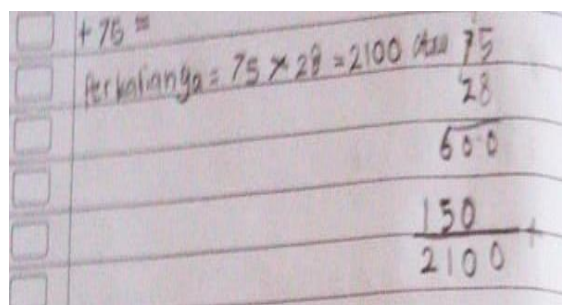 + 75 =
Perkalianya = 75 × 28 = 2100 atau 75
28
600
150 +
2100